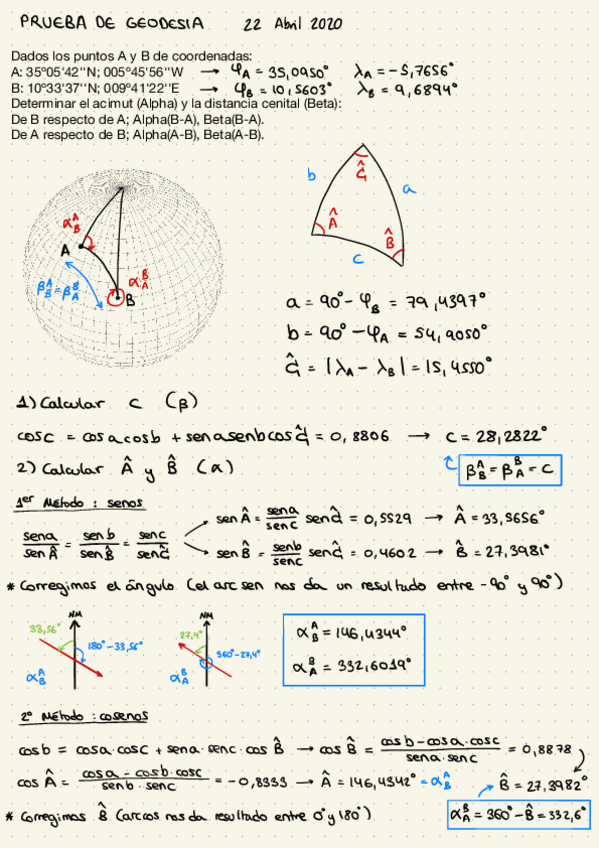 PRUEBA DE GEODESIA 22 Abril 2020
Dados los puntos A y B de coordenadas:
A: 35º05'42''N; 005º45'56''W → φA = 35,0950° λA = -5,7656°
B: 10º33'37''N; 009º41'22''E → φB = 10,5603° λB = 9,6894°
Determinar el acimut (Alpha) y la distancia cenital (Beta):
De B respecto de A; Alpha(B-A), Beta(B-A).
De A respecto de B; Alpha(A-B), Beta(A-B).
b Ĝ a
Â B̂
c
α^A_B
A
β^A_B = β^B_A
α^B_A
B
a = 90° - φB = 79,4397°
b = 90° - φA = 54,9050°
Ĝ = |λA - λB| = 15,4550°
1) Calcular c (β)
cos c = cos a cos b + sen a sen b cos Ĝ = 0,8806 → c = 28,2822°
β^A_B = β^B_A = c
2) Calcular Â y B̂ (α)
1er Método: senos
sen a / sen Â = sen b / sen B̂ = sen c / sen Ĝ
sen Â = sen a / sen c sen Ĝ = 0,5529 → Â = 33,5656°
sen B̂ = sen b / sen c sen Ĝ = 0,4602 → B̂ = 27,3981°
* Corregimos el ángulo (el arc sen nos da un resultado entre -90° y 90°)
NM NM
33,56° 180° - 33,56° α^A_B
27,4° 360° - 27,4° α^B_A
α^A_B = 146,4344°
α^B_A = 332,6019°
2° Método: cosenos
cos b = cos a · cos c + sen a · sen c · cos B̂ → cos B̂ = cos b - cos a · cos c / sen a · sen c = 0,8878
cos Â = cos a - cos b · cos c / sen b · sen c = -0,8333 → Â = 146,4342° = α^A_B B̂ = 27,3982°
* Corregimos B̂ (arccos nos da resultado entre 0° y 180°) α^B_A = 360° - B̂ = 332,6°